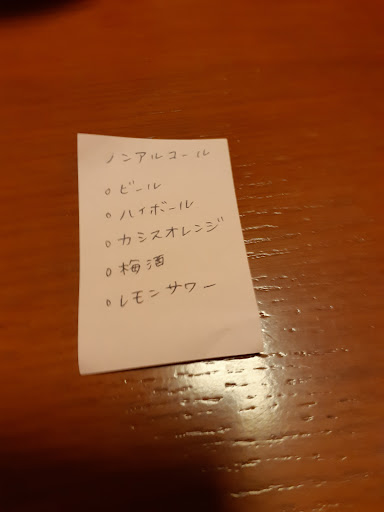 ノンアルコール
○ビール
○ハイボール
○カシスオレンジ
○梅酒
○レモンサワー